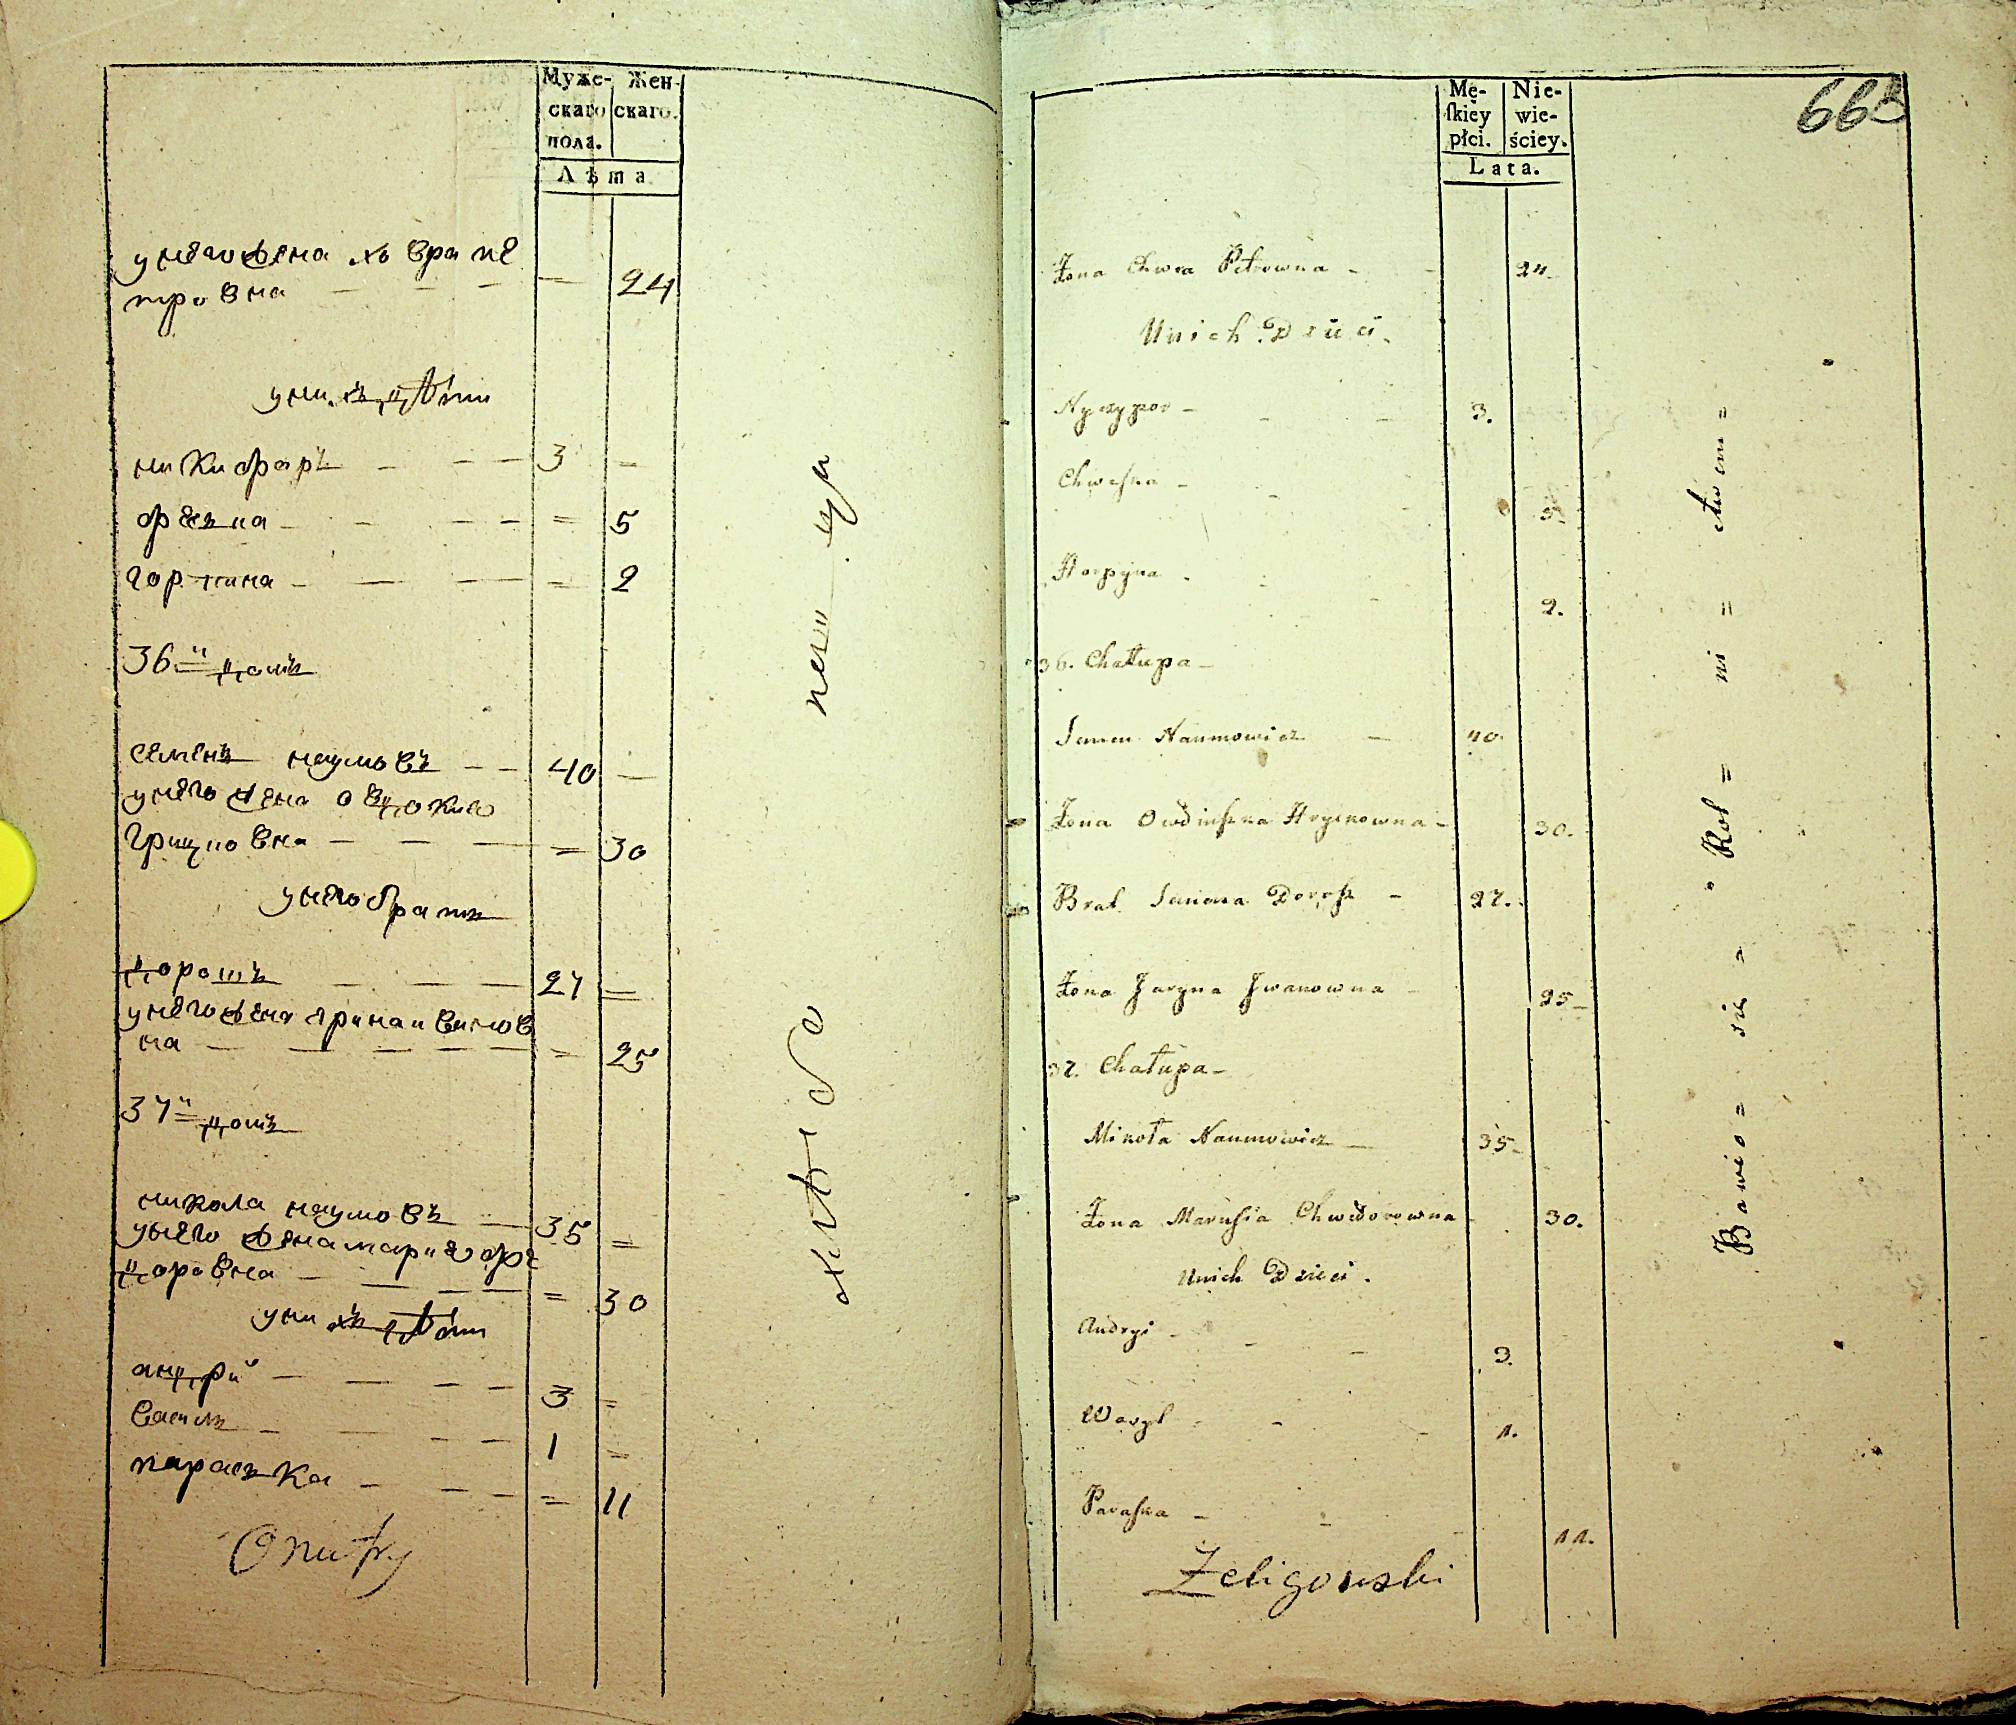 Муже-
скаго
пола.
Жен-
скаго.
Лѣта
у него жена хъвра пе
тровна — — — — 24
у нихъ дѣти
никифаръ — — — 3 —
феська — — — — = 5
горпина — — — = 2
36й домъ
семенъ наумовъ — — 40 —
у него жена овдокия
грицковна — — — = 30
у него братъ
дорошъ — — — 27 =
у него жена ярина ивановъ
на — — — — — = 25
37й домъ
никола наумовъ — 35 =
у него жена мария фе
доровна — — — = 30
у нихъ дѣти
андрий — — — — 3 =
василь — — — — 1 =
парасъка — — — — = 11
Onufry
663
Mę-
ſkiey
płci.
Nie-
wie-
ściey.
Lata.
Żona Chwra Petrowna - - 24
U nich Dzieci.
Nyczypor - - - 3.
Chweſka - - - 5.
Horpyna - - - 2.
36. Chałupa -
Semen Naumowicz - 40.
Żona Owdiuſzka Hryckowna - 30.
Brat Semena Dorosz - 27.
Żona Jaryna Jwanowna - 25 -
37. Chałupa -
Mikoła Naumowicz - 35 -
Żona Marusia Chwedorowna - 30.
U nich Dzieci.
Andryi - - - 3.
Wasyl - - - 1.
Paraſka - - - 11.
Żeligowski
Bawio = sie = Rol = ni = ctwem =